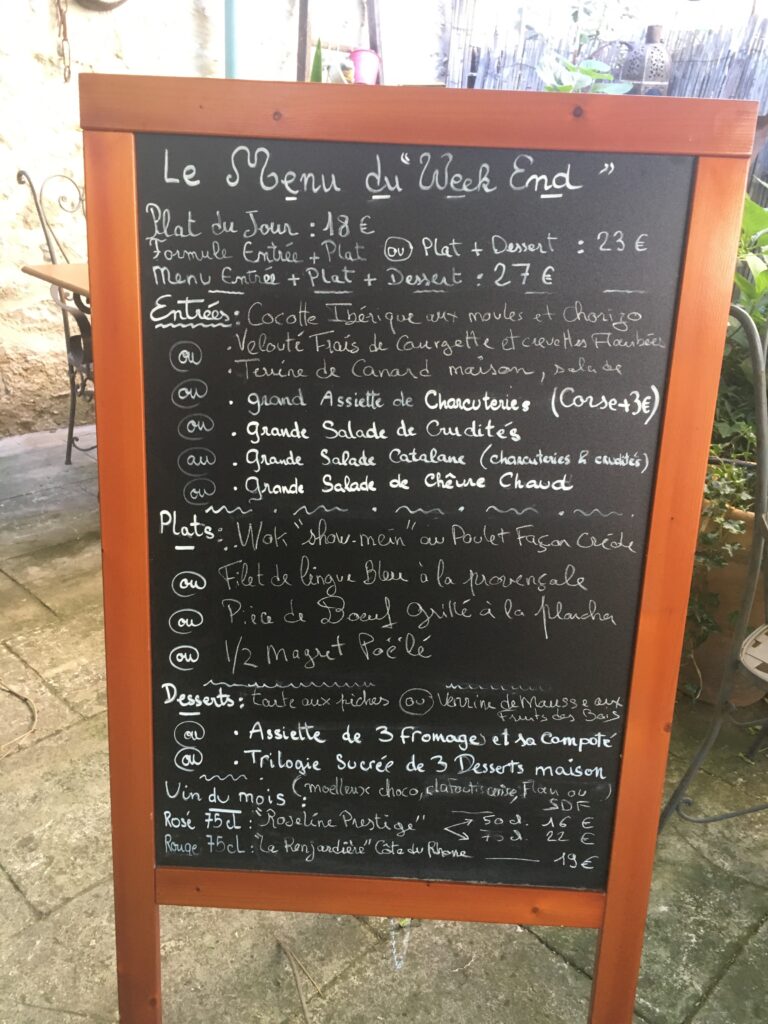 Le Menu du "Week End"
Plat du Jour : 18 €
Formule Entrée + Plat ou Plat + Dessert : 23 €
Menu Entrée + Plat + Dessert : 27 €
Entrées : Cocotte Ibérique aux moules et Chorizo
ou . Velouté Frais de Courgette et crevettes Flambées
. Terrine de Canard maison, salade
ou . grand Assiette de Charcuteries (Corse+3€)
ou . Grande Salade de Crudités
au . Grande Salade Catalane (charcuteries & crudités)
ou . Grande Salade de Chêvre Chaud
Plats : Wok "show-mein" au Poulet Façon
ou Filet de lingue Bleu à la provençale
ou Pièce de Boeuf Grillé à la plancha
ou 1/2 Magret Poëlé
Desserts : tarte aux pêches ou Verrine de Mousse aux
Fruits des Bois
ou . Assiette de 3 fromages et sa Compoté
ou . Trilogie Sucrée de 3 Desserts maison
(moelleux choco, Flan ou
SDF)
Vin du mois :
Rosé 75cl : "Roseline Prestige" 50cl. 16 €
22 €
Rouge 75cl : "La Renjardière" Côte du Rhone 19€